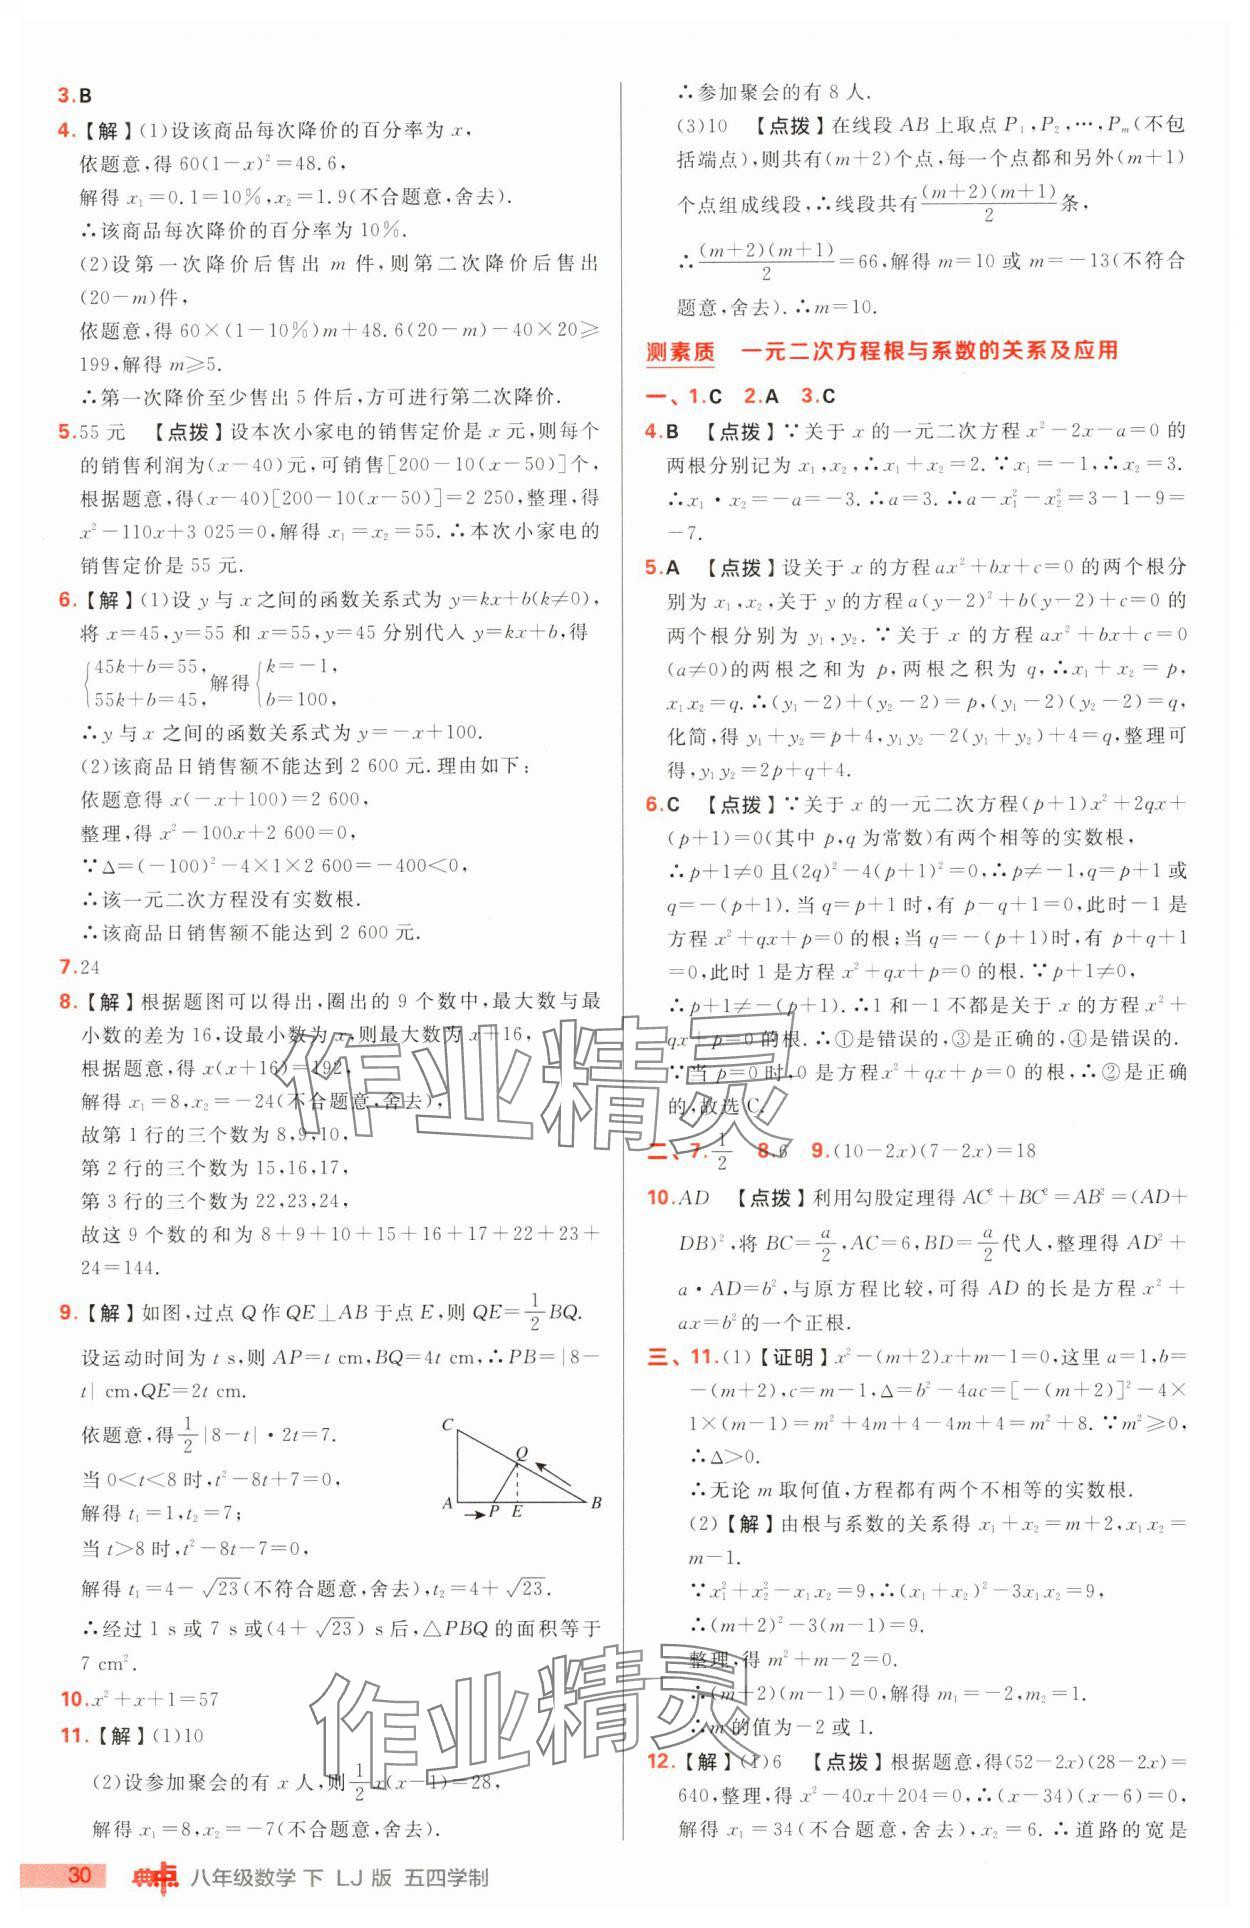 3.B
4.【解】(1)设该商品每次降价的百分率为 x,
依题意,得 60(1－x)²＝48.6,
解得 x₁＝0.1＝10%,x₂＝1.9(不合题意,舍去).
∴该商品每次降价的百分率为 10%.
(2)设第一次降价后售出 m 件,则第二次降价后售出
(20－m)件,
依题意,得 60×(1－10%)m＋48.6(20－m)－40×20≥
199,解得 m≥5.
∴第一次降价至少售出 5 件后,方可进行第二次降价.
5.55 元 【点拨】设本次小家电的销售定价是 x 元,则每个
的销售利润为(x－40)元,可销售[200－10(x－50)]个,
根据题意,得(x－40)[200－10(x－50)]＝2 250,整理,得
x²－110x＋3 025＝0,解得 x₁＝x₂＝55.∴本次小家电的
销售定价是 55 元.
6.【解】(1)设 y 与 x 之间的函数关系式为 y＝kx＋b(k≠0),
将 x＝45,y＝55 和 x＝55,y＝45 分别代入 y＝kx＋b,得
{45k＋b＝55, 55k＋b＝45, 解得 {k＝－1, b＝100,
∴y 与 x 之间的函数关系式为 y＝－x＋100.
(2)该商品日销售额不能达到 2 600 元.理由如下:
依题意得 x(－x＋100)＝2 600,
整理,得 x²－100x＋2 600＝0,
∵Δ＝(－100)²－4×1×2 600＝－400＜0,
∴该一元二次方程没有实数根.
∴该商品日销售额不能达到 2 600 元.
7.24
8.【解】根据题图可以得出,圈出的 9 个数中,最大数与最
小数的差为 16,设最小数为 x,则最大数为 x＋16,
根据题意,得 x(x＋16)＝192,
解得 x₁＝8,x₂＝－24(不合题意,舍去),
故第 1 行的三个数为 8,9,10,
第 2 行的三个数为 15,16,17,
第 3 行的三个数为 22,23,24,
故这 9 个数的和为 8＋9＋10＋15＋16＋17＋22＋23＋
24＝144.
9.【解】如图,过点 Q 作 QE⊥AB 于点 E,则 QE＝1/2 BQ.
设运动时间为 t s,则 AP＝t cm,BQ＝4t cm,∴PB＝|8－
t| cm,QE＝2t cm.
依题意,得 1/2 |8－t|·2t＝7.
当 0＜t＜8 时,t²－8t＋7＝0,
解得 t₁＝1,t₂＝7;
当 t＞8 时,t²－8t－7＝0,
解得 t₁＝4－√23(不符合题意,舍去),t₂＝4＋√23.
∴经过 1 s 或 7 s 或(4＋√23) s 后,△PBQ 的面积等于
7 cm².
C
Q
A
P
E
B
10.x²＋x＋1＝57
11.【解】(1)10
(2)设参加聚会的有 x 人,则 1/2 x(x－1)＝28,
解得 x₁＝8,x₂＝－7(不合题意,舍去).
∴参加聚会的有 8 人.
(3)10 【点拨】在线段 AB 上取点 P₁,P₂,…,Pₘ(不包
括端点),则共有(m＋2)个点,每一个点都和另外(m＋1)
个点组成线段,∴线段共有 (m＋2)(m＋1)/2 条,
∴(m＋2)(m＋1)/2＝66,解得 m＝10 或 m＝－13(不符合
题意,舍去).∴m＝10.
测素质 一元二次方程根与系数的关系及应用
一、1.C 2.A 3.C
4.B 【点拨】∵关于 x 的一元二次方程 x²－2x－a＝0 的
两根分别记为 x₁,x₂,∴x₁＋x₂＝2.∵x₁＝－1,∴x₂＝3.
∴x₁·x₂＝－a＝－3.∴a＝3.∴a－x₁²－x₂²＝3－1－9＝
－7.
5.A 【点拨】设关于 x 的方程 ax²＋bx＋c＝0 的两个根分
别为 x₁,x₂,关于 y 的方程 a(y－2)²＋b(y－2)＋c＝0 的
两个根分别为 y₁,y₂.∵关于 x 的方程 ax²＋bx＋c＝0
(a≠0)的两根之和为 p,两根之积为 q,∴x₁＋x₂＝p,
x₁x₂＝q.∴(y₁－2)＋(y₂－2)＝p,(y₁－2)(y₂－2)＝q,
化简,得 y₁＋y₂＝p＋4,y₁y₂－2(y₁＋y₂)＋4＝q,整理可
得,y₁y₂＝2p＋q＋4.
6.C 【点拨】∵关于 x 的一元二次方程(p＋1)x²＋2qx＋
(p＋1)＝0(其中 p,q 为常数)有两个相等的实数根,
∴p＋1≠0 且(2q)²－4(p＋1)²＝0,∴p≠－1,q＝p＋1 或
q＝－(p＋1).当 q＝p＋1 时,有 p－q＋1＝0,此时－1 是
方程 x²＋qx＋p＝0 的根;当 q＝－(p＋1)时,有 p＋q＋1
＝0,此时 1 是方程 x²＋qx＋p＝0 的根.∵p＋1≠0,
∴p＋1≠－(p＋1).∴1 和－1 不都是关于 x 的方程 x²＋
qx＋p＝0 的根.∴①是错误的,③是正确的,④是错误的.
∵当 p＝0 时,0 是方程 x²＋qx＋p＝0 的根,∴②是正确
的,故选 C.
二、7.1/2 8.6 9.(10－2x)(7－2x)＝18
10.AD 【点拨】利用勾股定理得 AC²＋BC²＝AB²＝(AD＋
DB)²,将 BC＝a/2,AC＝6,BD＝a/2代人,整理得 AD²＋
a·AD＝b²,与原方程比较,可得 AD 的长是方程 x²＋
ax＝b²的一个正根.
三、11.(1)【证明】x²－(m＋2)x＋m－1＝0,这里 a＝1,b＝
－(m＋2),c＝m－1,Δ＝b²－4ac＝[－(m＋2)]²－4×
1×(m－1)＝m²＋4m＋4－4m＋4＝m²＋8.∵m²≥0,
∴Δ＞0.
∴无论 m 取何值,方程都有两个不相等的实数根.
(2)【解】由根与系数的关系得 x₁＋x₂＝m＋2,x₁x₂＝
m－1.
∵x₁²＋x₂²－x₁x₂＝9,∴(x₁＋x₂)²－3x₁x₂＝9,
∴(m＋2)²－3(m－1)＝9.
整理,得 m²＋m－2＝0.
∴(m＋2)(m－1)＝0,解得 m₁＝－2,m₂＝1.
∴m 的值为－2 或 1.
12.【解】(1)6 【点拨】根据题意,得(52－2x)(28－2x)＝
640,整理,得 x²－40x＋204＝0,∴(x－34)(x－6)＝0,
解得 x₁＝34(不合题意,舍去),x₂＝6.∴道路的宽是
作业精灵
作业精灵
30 典中点 八年级数学 下 LJ 版 五四学制